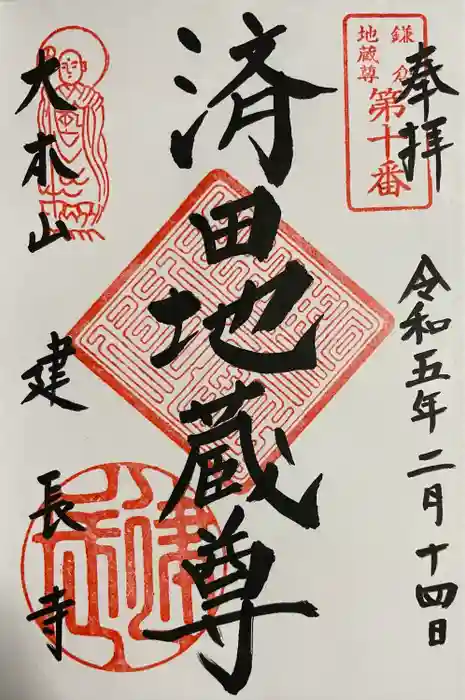 奉拝
鎌倉
地蔵尊
第十番
令和五年二月十四日
済田地蔵尊
大本山
建長寺